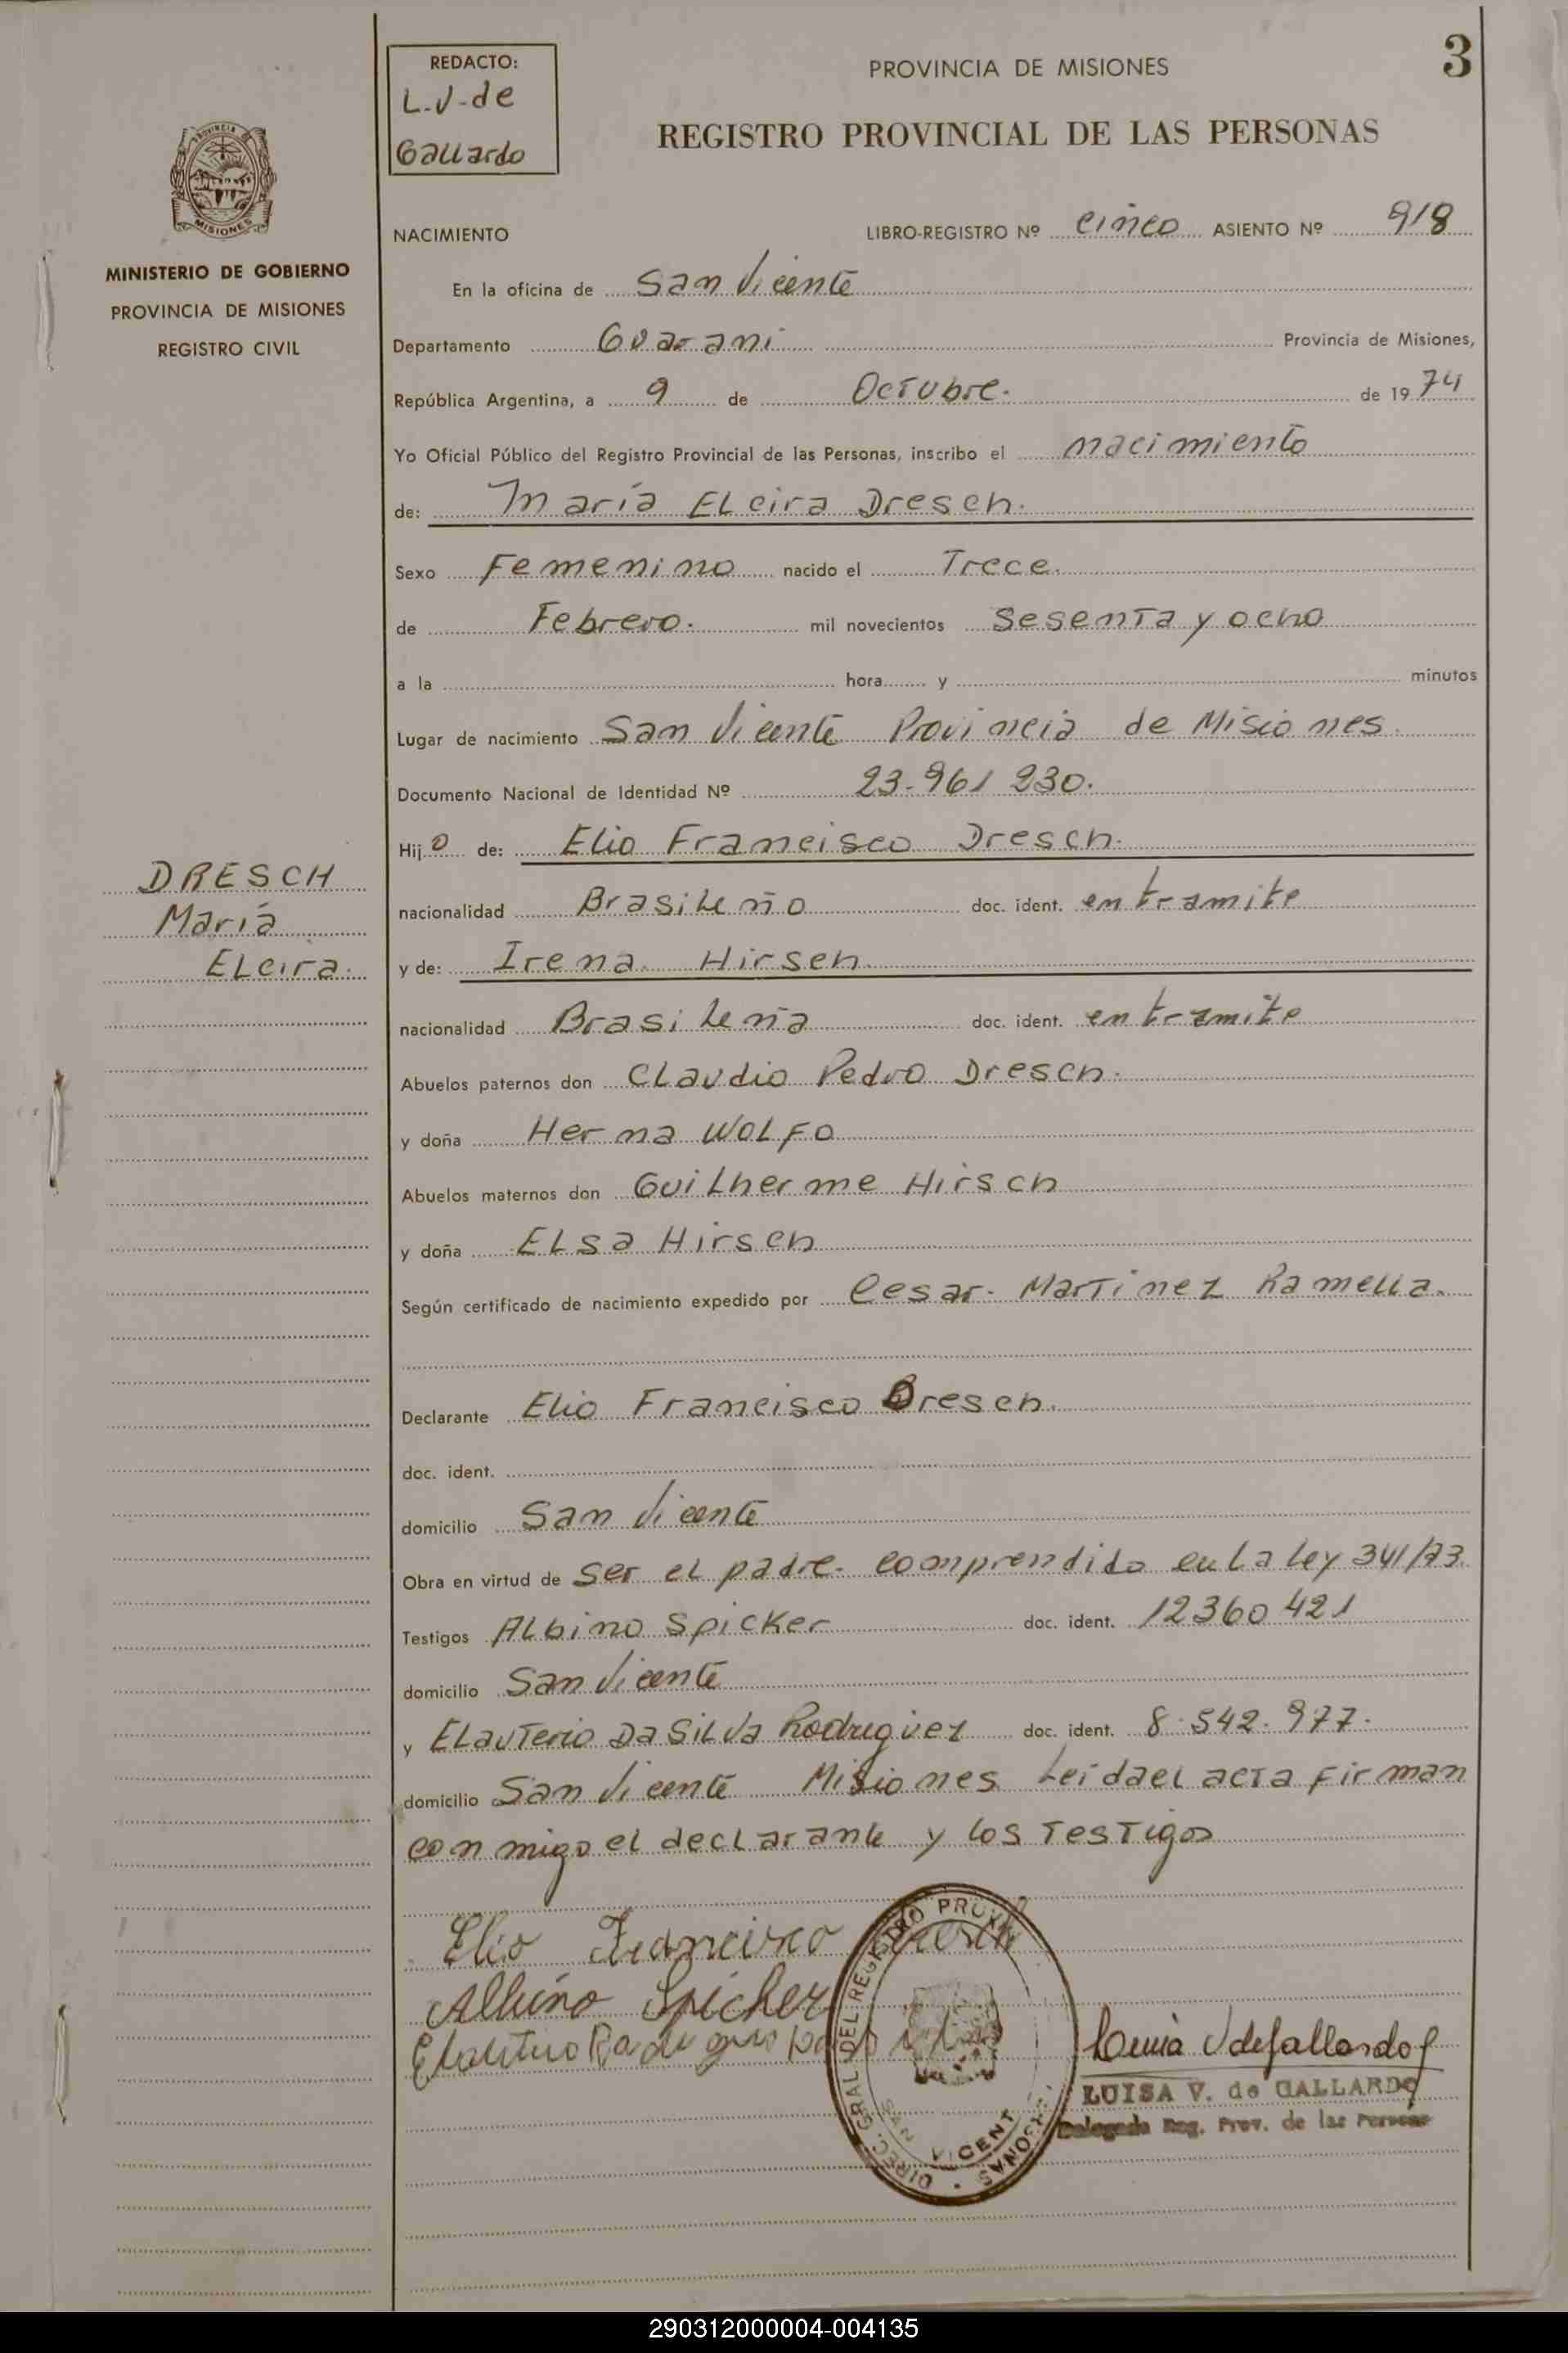 3
REDACTO:
L.V. de
Gallardo
PROVINCIA DE MISIONES
REGISTRO PROVINCIAL DE LAS PERSONAS
PROVINCIA MISIONES
MINISTERIO DE GOBIERNO
PROVINCIA DE MISIONES
REGISTRO CIVIL
NACIMIENTO LIBRO-REGISTRO Nº cinco ASIENTO Nº 918
En la oficina de San Vicente
Departamento Guarani Provincia de Misiones,
República Argentina, a 9 de Octubre. de 1974
Yo Oficial Público del Registro Provincial de las Personas, inscribo el nacimiento
de: María Elcira Dresch.
Sexo Femenino nacido el Trece.
de Febrero. mil novecientos Sesenta y ocho
a la hora y minutos
Lugar de nacimiento San Vicente Provincia de Misiones.
Documento Nacional de Identidad Nº 23.961 230.
Hijo de: Elio Francisco Dresch.
DRESCH
María
Elcira.
nacionalidad Brasileño doc. ident. en tramite
y de: Irena Hirsch.
nacionalidad Brasileña doc. ident. en tramite
Abuelos paternos don Claudio Pedro Dresch.
y doña Herma Wolfo
Abuelos maternos don Guilherme Hirsch
y doña Elsa Hirsch
Según certificado de nacimiento expedido por Cesar Martinez Ramella.
Declarante Elio Francisco Dresch.
doc. ident.
domicilio San Vicente
Obra en virtud de ser el padre. comprendido en la ley 341/73.
Testigos Albino Spicker doc. ident. 12360421
domicilio San Vicente
y Elauterio Da Silva Rodriguez doc. ident. 8.542.977.
domicilio San Vicente Misiones Leida el acta firman
conmigo el declarante y los Testigos
Elio Francisco Dresch
Albino Spicker
DIREC. GRAL DEL REGISTRO PROV. PERSONAS
SAN VICENTE
LUISA V. de GALLARDO
Delegada Reg. Prov. de las Personas
290312000004-004135